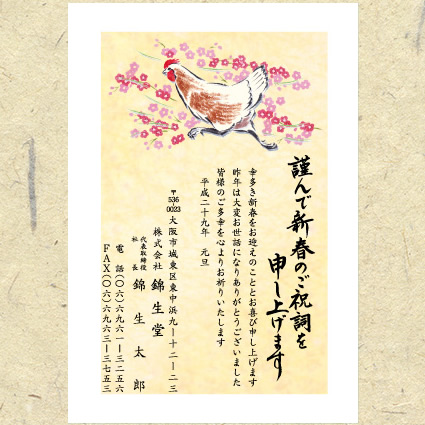 謹んで新春のご祝詞を
申し上げます
幸多き新春をお迎えのこととお喜び申し上げます
昨年は大変お世話になりありがとうございました
皆様のご多幸を心よりお祈りいたします
平成二十九年 元旦
〒536-0023
大阪市城東区東中浜九ー十二ー二三
株式会社 錦生堂
代表取締役
社長 錦生太郎
電話(〇六)六九六一ー三二五六
FAX(〇六)六九六三ー三七五三